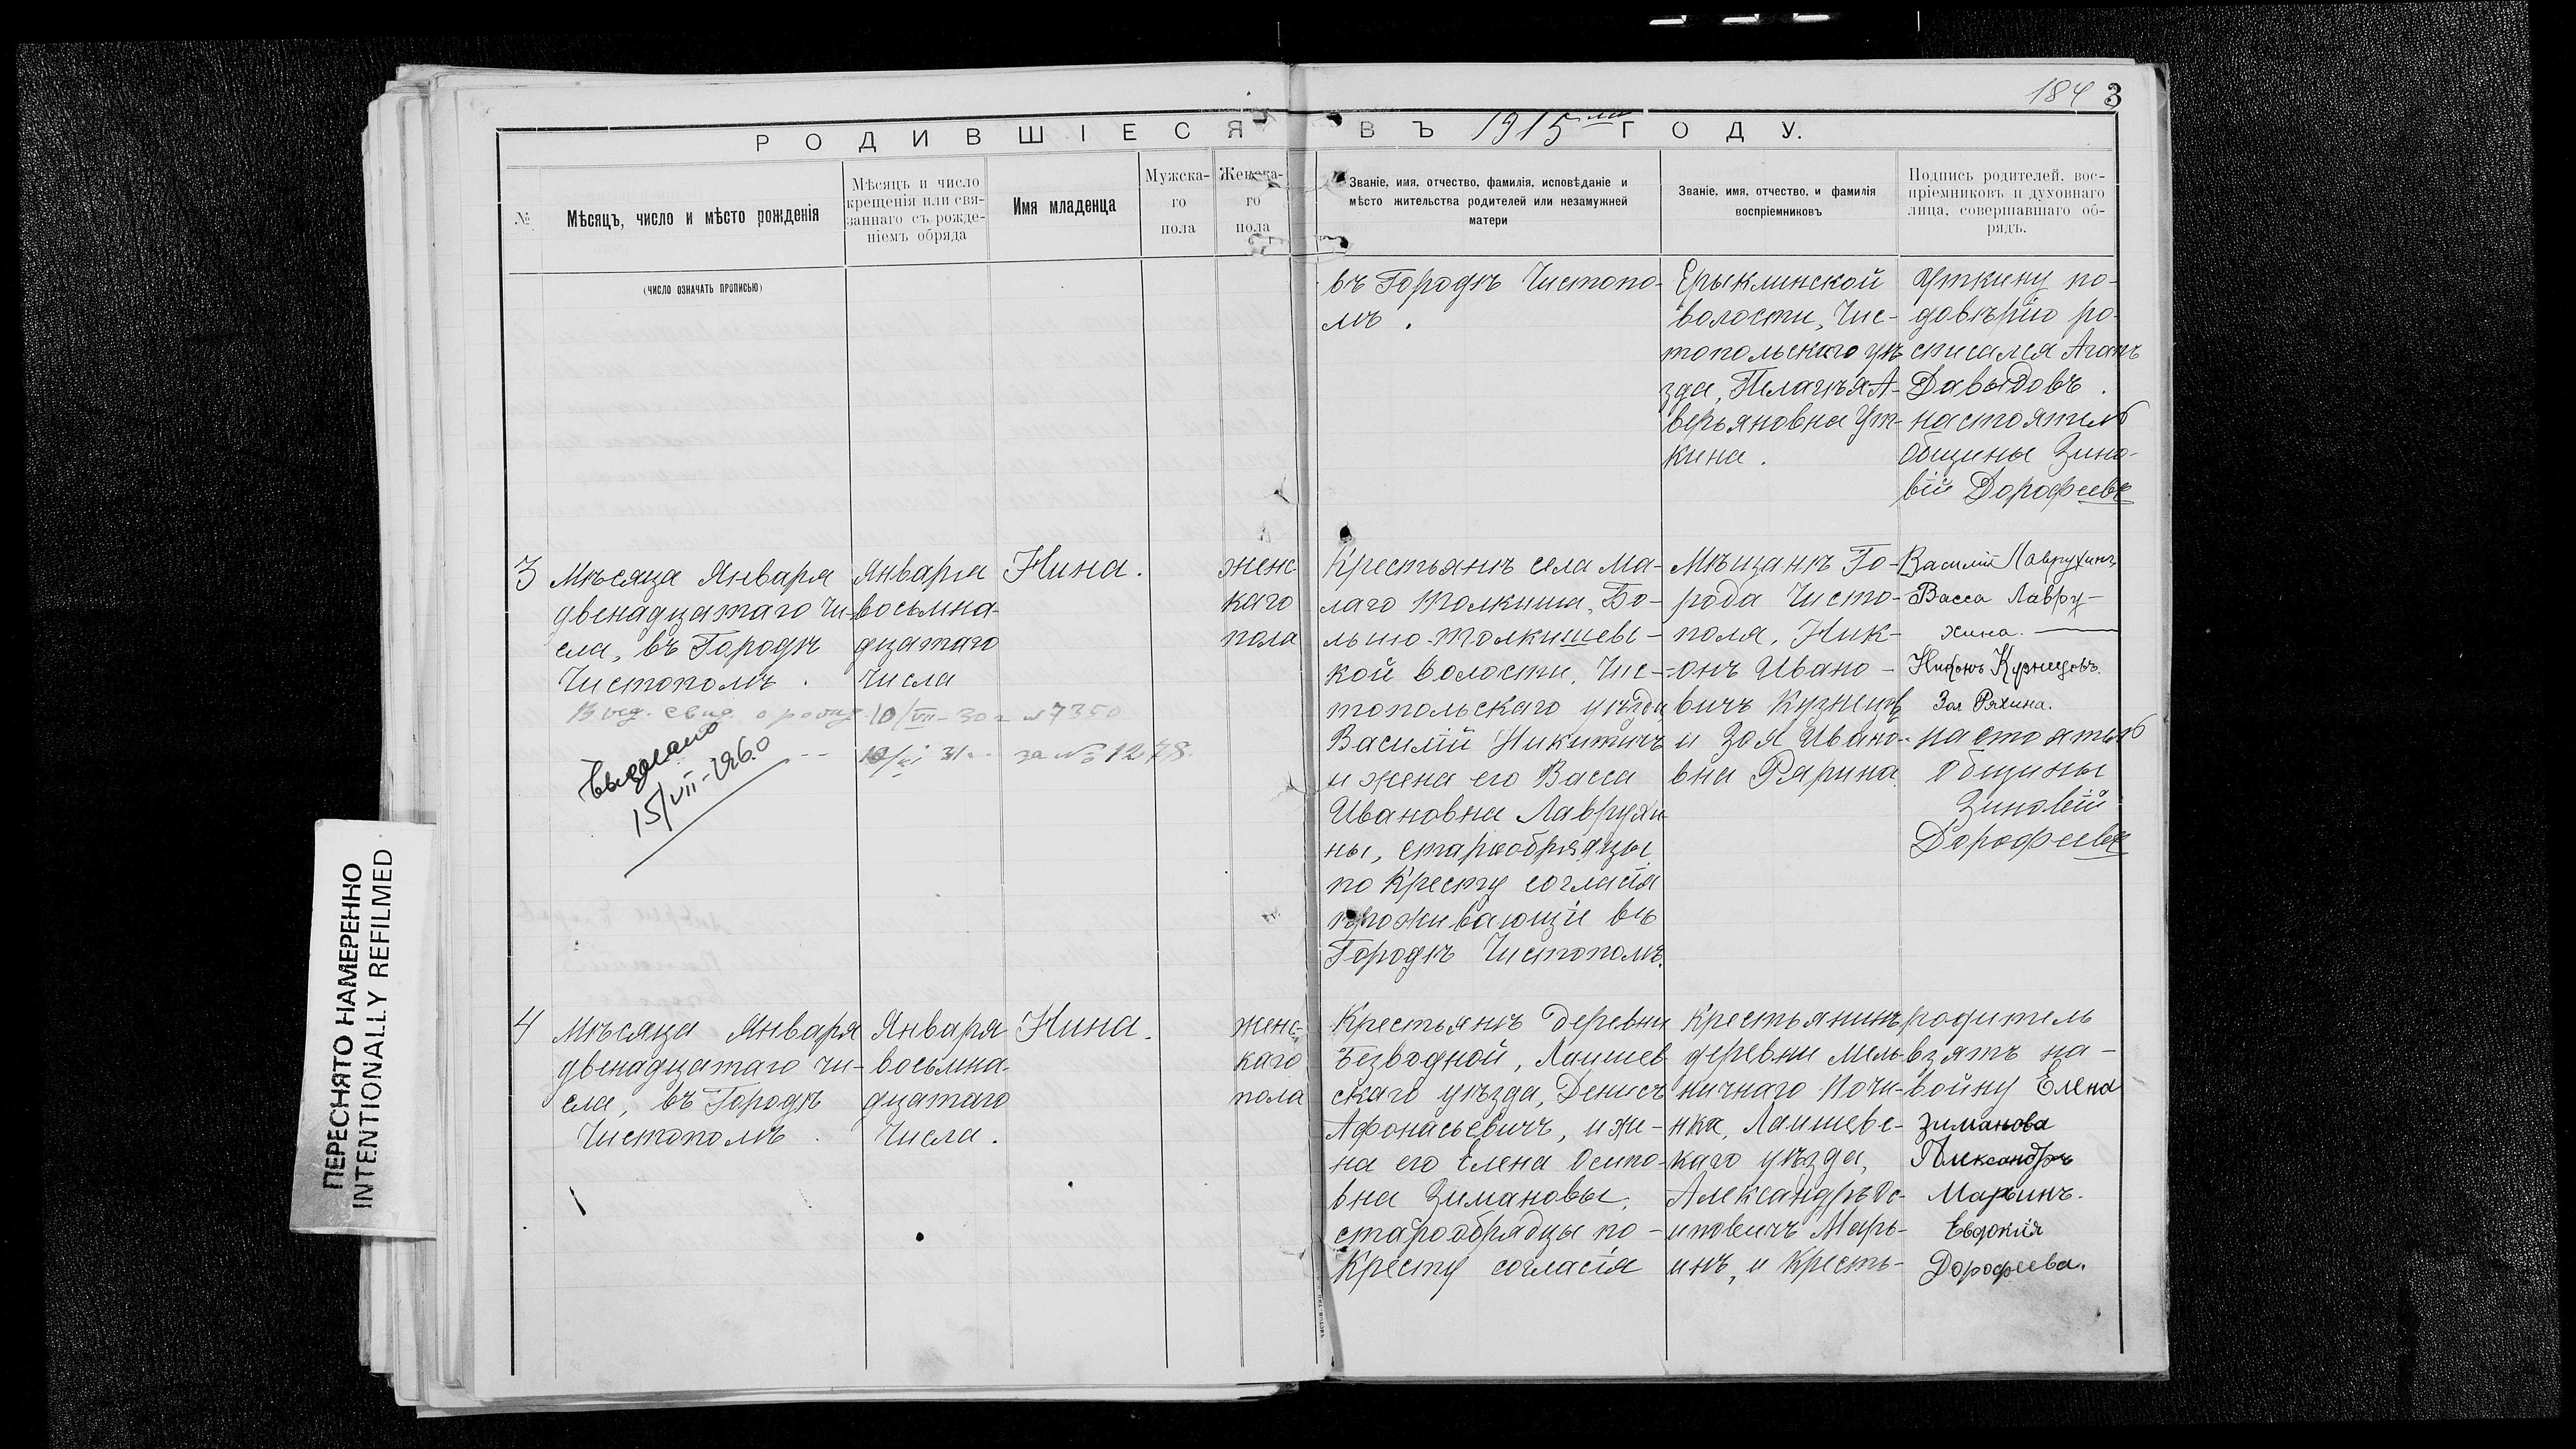 184 3
РОДИВШІЕСЯ ВЪ 1915 ГОДУ.
№
Мѣсяцъ, число и мѣсто рожденія
Мѣсяцъ и число
крещенія или свя-
заннаго съ рожде-
ніемъ обряда
Имя младенца
Мужска-
го
пола
Женска-
го
пола
Званіе, имя, отчество, фамилія, исповѣданіе и
мѣсто жительства родителей или незамужней
матери
Званіе, имя, отчество, и фамилія
воспріемниковъ
Подпись родителей, вос-
пріемниковъ и духовнаго
лица, совершавшаго об-
рядъ.
(ЧИСЛО ОЗНАЧАТЬ ПРОПИСЬЮ)
въ Городѣ Чистопо-
лѣ.
Ерыклинской
волости, Чис-
топольскаго уѣ
зда, Пелагѣя А-
верьяновна Ут-
кина.
Уткину по-
довѣрію ро-
списался Агапъ
Давыдовъ.
настоятель
Общины Зино-
вій Дорофеевъ
3
Мѣсяца Января
двенадцатаго чи-
сла, въ Городѣ
Чистополѣ.
Января
восьмна-
дцатаго
Числа
Нина.
женс-
каго
пола
Крестьянѣ села Ма-
лаго Толкиша, Бо-
льшо-Толкишевс-
кой волости, Чис-
топольскаго уѣзда
Василій Никитичъ
и жена его Васса
Ивановна Лаврухи-
ны, старообрядцы
по Кресту согласія
проживающіе въ
Городѣ Чистополѣ.
Мѣщанѣ Го-
рода Чисто-
поля, Ник-
онъ Ивано-
вичъ Кузнецовъ
и Зоя Ивано-
вна Ряхина.
Василій Лаврухинъ
Васса Лавру-
хина.
Никонъ Кузнецовъ.
Зоя Ряхина.
настоятель
Общины
Зиновій
Дорофеевъ
Выд. свид. о рожд 10/VII-30 г №7350
-- 10/VI 31 г. за №1278.
Выдано
15/VII-1960
4
Мѣсяца Января
двенадцатаго чи-
сла, въ Городѣ
Чистополѣ.
Января
восьмна-
дцатаго
Числа.
Нина.
женс-
каго
пола
Крестьянѣ Деревни
Безводной, Лаишев
скаго уѣзда, Денисъ
Афонасьевичъ, и же-
на его Елена Осипо-
вна Зимановы,
старообрядцы по-
Кресту согласія
Крестьянинъ
деревни Мель-
ничнаго Почи-
нка, Лаишевс-
каго уѣзда,
Александръ Ос-
иповичъ Марь-
инъ, и Кресть-
родитель
взятъ на-
войну Елена
Зиманова
Александръ
Марьинъ.
Евдокія
Дорофеева.
ПЕРЕСНЯТО НАМЕРЕННО
INTENTIONALLY REFILMED